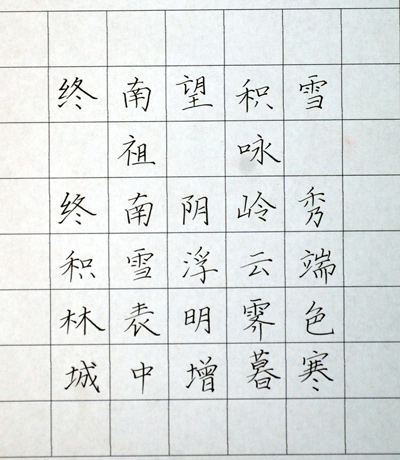 终南望积雪
祖咏
终南阴岭秀
积雪浮云端
林表明霁色
城中增暮寒